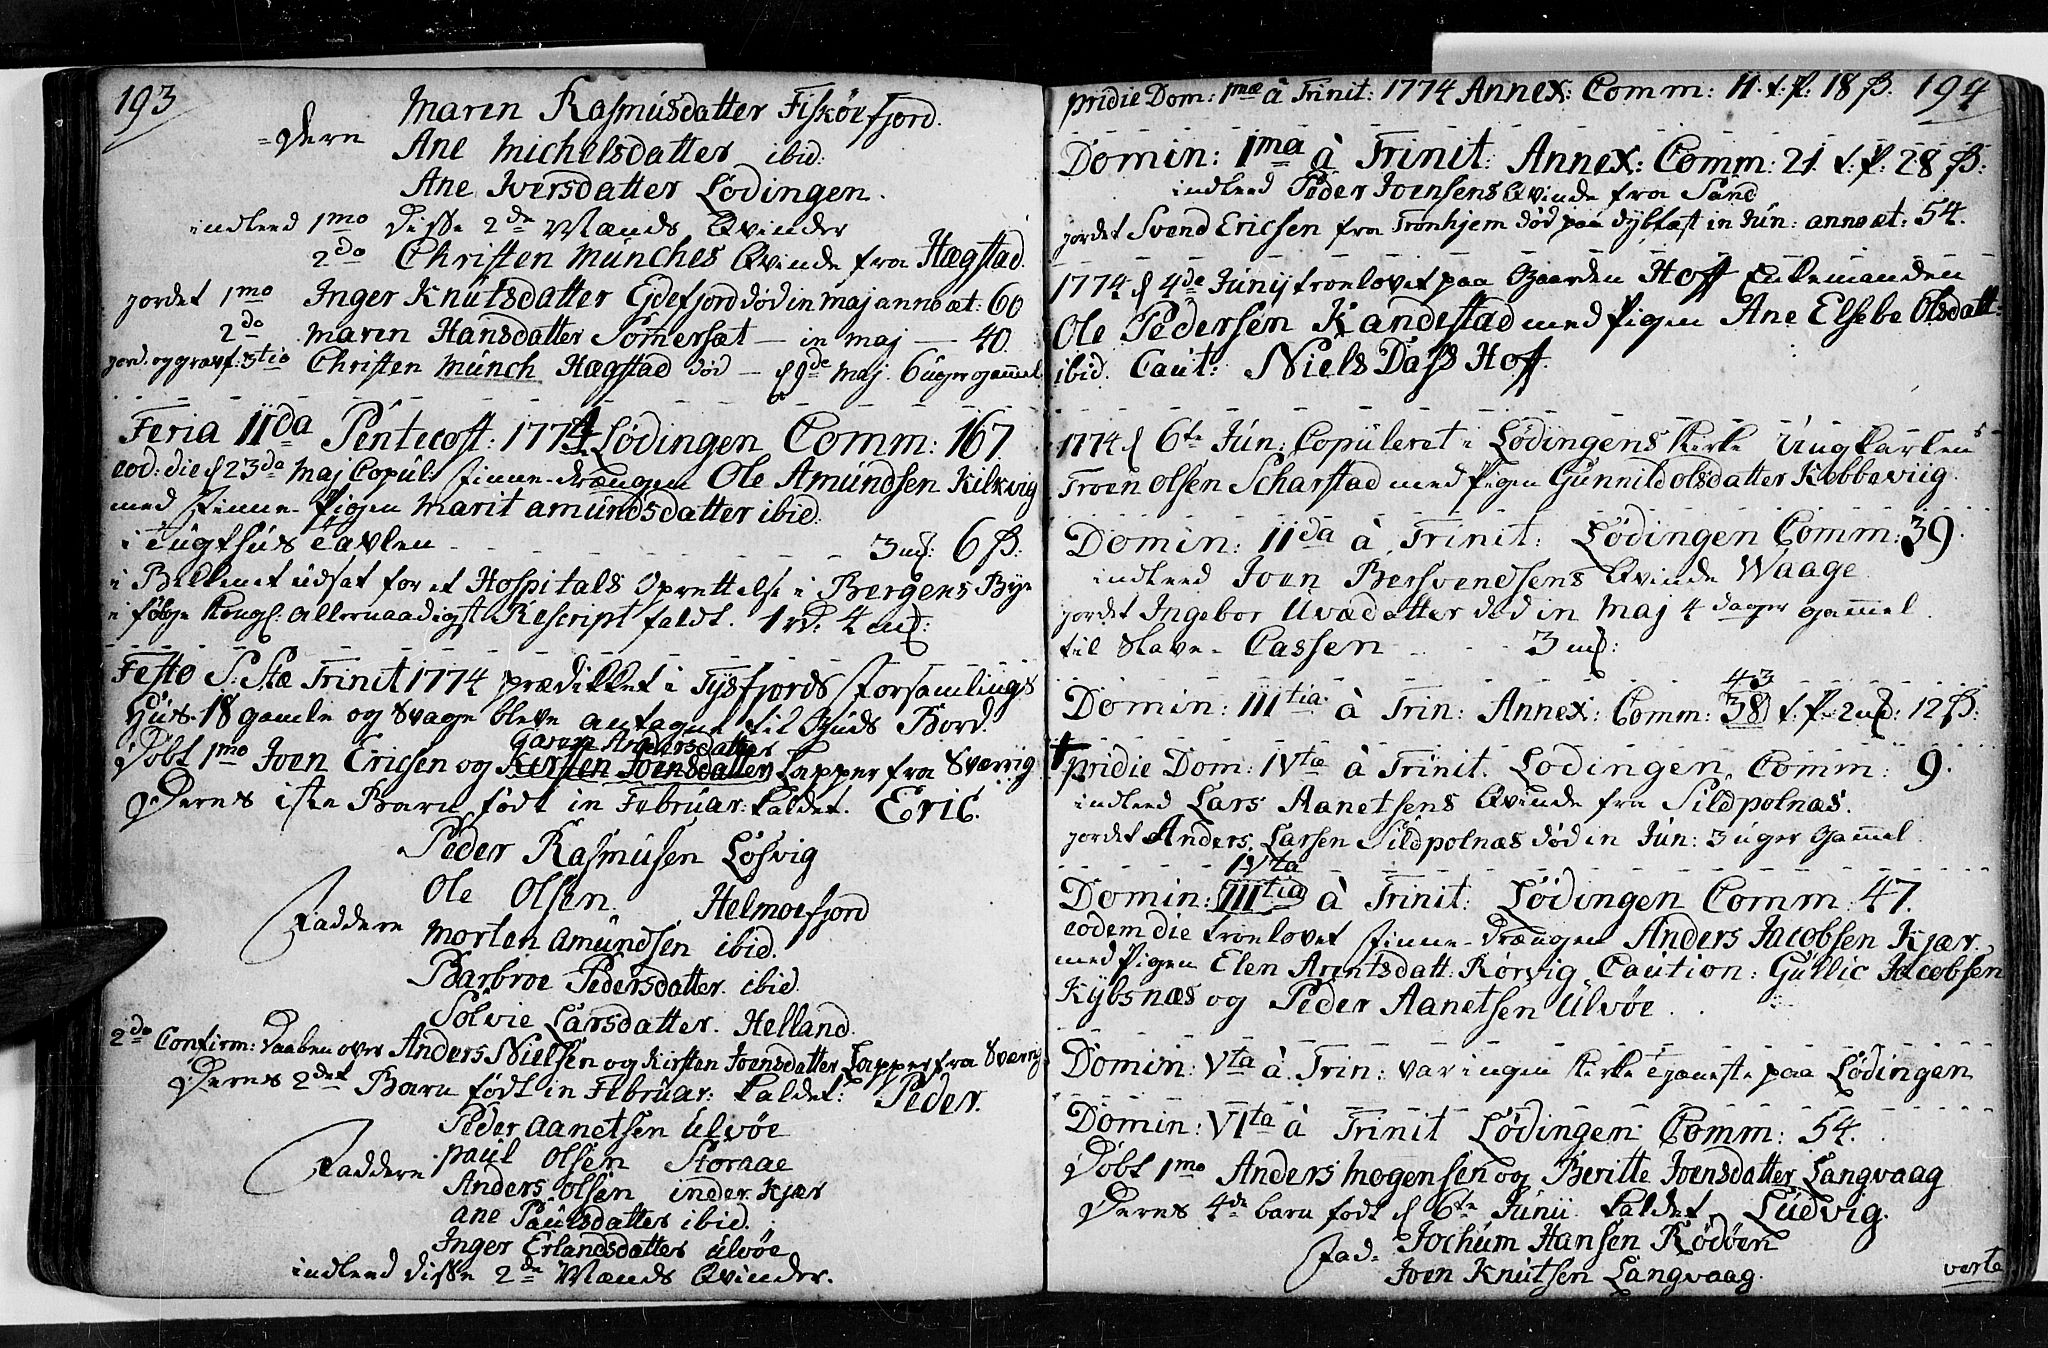 193
Maren Rasmusdatter Fiskøefjord.
=dere Ane Michelsdatter ibid:
Ane Iversdatter Lødingen.
indleed 1mo disse 2de Mænds Qvinder
2do Christen Münches Qvinde fra Hægstad.
jordet 1mo Inger Knutsdatter Ejdefjord død in maj anno æt: 60
2do Maren Hansdatter Sommersæt — in maj — 40.
jord. og græsf. 3tio Christen Münch Hægstad død — d 9de Maj. 6 uger gammel
Feria IIda Pentecost: 1774 Lødingen Comm: 167.
eod: die d 23da Maj Copul: Finne-drængen Ole Amundsen Kilkvig
med Finne-Pigen Marit amundsdatter ibid.
i Tugthus tavlen - - - 3 mf: 6 ß:
i Bekkenet udsat for et Hospitals Oprettelse i Bergens Bye
i følge Kongl: allernaadigst Rescript faldt. 1 rd: 4 mf:
Festo S: Stæ Trinit 1774 prædikket i Tysfjords Forsamlings
Huus. 18 gamle og svage bleve antagne til Guds Bord.
Garen Andersdatter
Døbt 1mo Joen Ericsen og Kirsten Joensdatter Lapper fra Sverrig
Deres 1ste Barn født in Februar: kaldet. Eric.
Peder Rasmusen Løsvig
Ole Olsen Helmoefjord
Faddere Morten Amundsen ibid.
Barbroe Pedersdatter. ibid.
Sølvie Larsdatter. Helland.
2do Confirm: Daaben over Anders Nielsen og Kirsten Joensdatter Lapper fra Sverrig
Deres 2det Barn født in Februar: kaldet: Peder.
Peder Aanetsen Ulvøe
Paul Olsen Storaae
Faddere Anders Olsen inder Kjær
ane Paulsdatter ibid.
Inger Erlandsdatter Ulvøe
indleed disse 2de Mænds Qvinder.
pridie Dom: 1mæ à Trinit: 1774 Annex: Comm: 11. t. p. 18 ß. 194
Domin: 1ma à Trinit: Annex: Comm: 21. t. p: 28 ß:
indleed Peder Joensens Qvinde fra Sand
jordet Svend Ericsen fra Tronhjem død paa dybfæst in Jun: anno æt: 54.
1774 d 4de Junij troelovet paa Gaarden Hoff Enkemanden
Ole Pedersen Kandestad med Pigen Ane Elsebe Olsdatt:
ibid. Caut: Niels Dass Hoff.
1774 d 6te Jun: Copuleret i Lødingens Kirke Ungkarlen
Troen Olsen Scharstad med Pigen Gunnild Olsdatter Kobbeviig.
Domin: IIda à Trinit: Lødingen Comm: 39.
indleed Joen Bersvendsens Qvinde Waage
jordet Ingebor Uvædatter død in Maj 4 dager gammel.
til Slave-Cassen - - - 3 mf:
43
Domin: IIItia à Trin: Annex: Comm: 38 t. p: 2 mf: 12 ß:
† pridie Dom: IVtæ à Trinit. Lodingen Comm: 9.
indleed Lars Aanetsens Qvinde fra Sildpolnæs.
jordet Anders Larsen Sildpolnæs død in Jun: 3 uger Gammel
IVta
Domin: IIItia à Trinit: Lødingen Comm: 47.
eodem die troelovet Finne-Drængen Anders Jacobsen Kjær.
med Pigen Elen Arentsdatt: Rørvig Caution: Gullic Jacobsen
Kybsnæs og Peder Aanetsen Ulvøe.
Domin: Vta à Trin: var ingen Kirke Tjeneste paa Lødingen
Domin: VIta à Trinit Lødingen Comm: 54.
Døbt 1mo Anders Mogensen og Beritte Joensdatter Langvaag
Deres 4de barn født d 6te Junii kaldet Ludvig.
Fad- Jochum Hansen Rødøen
Joen Knutsen Langvaag.
verte